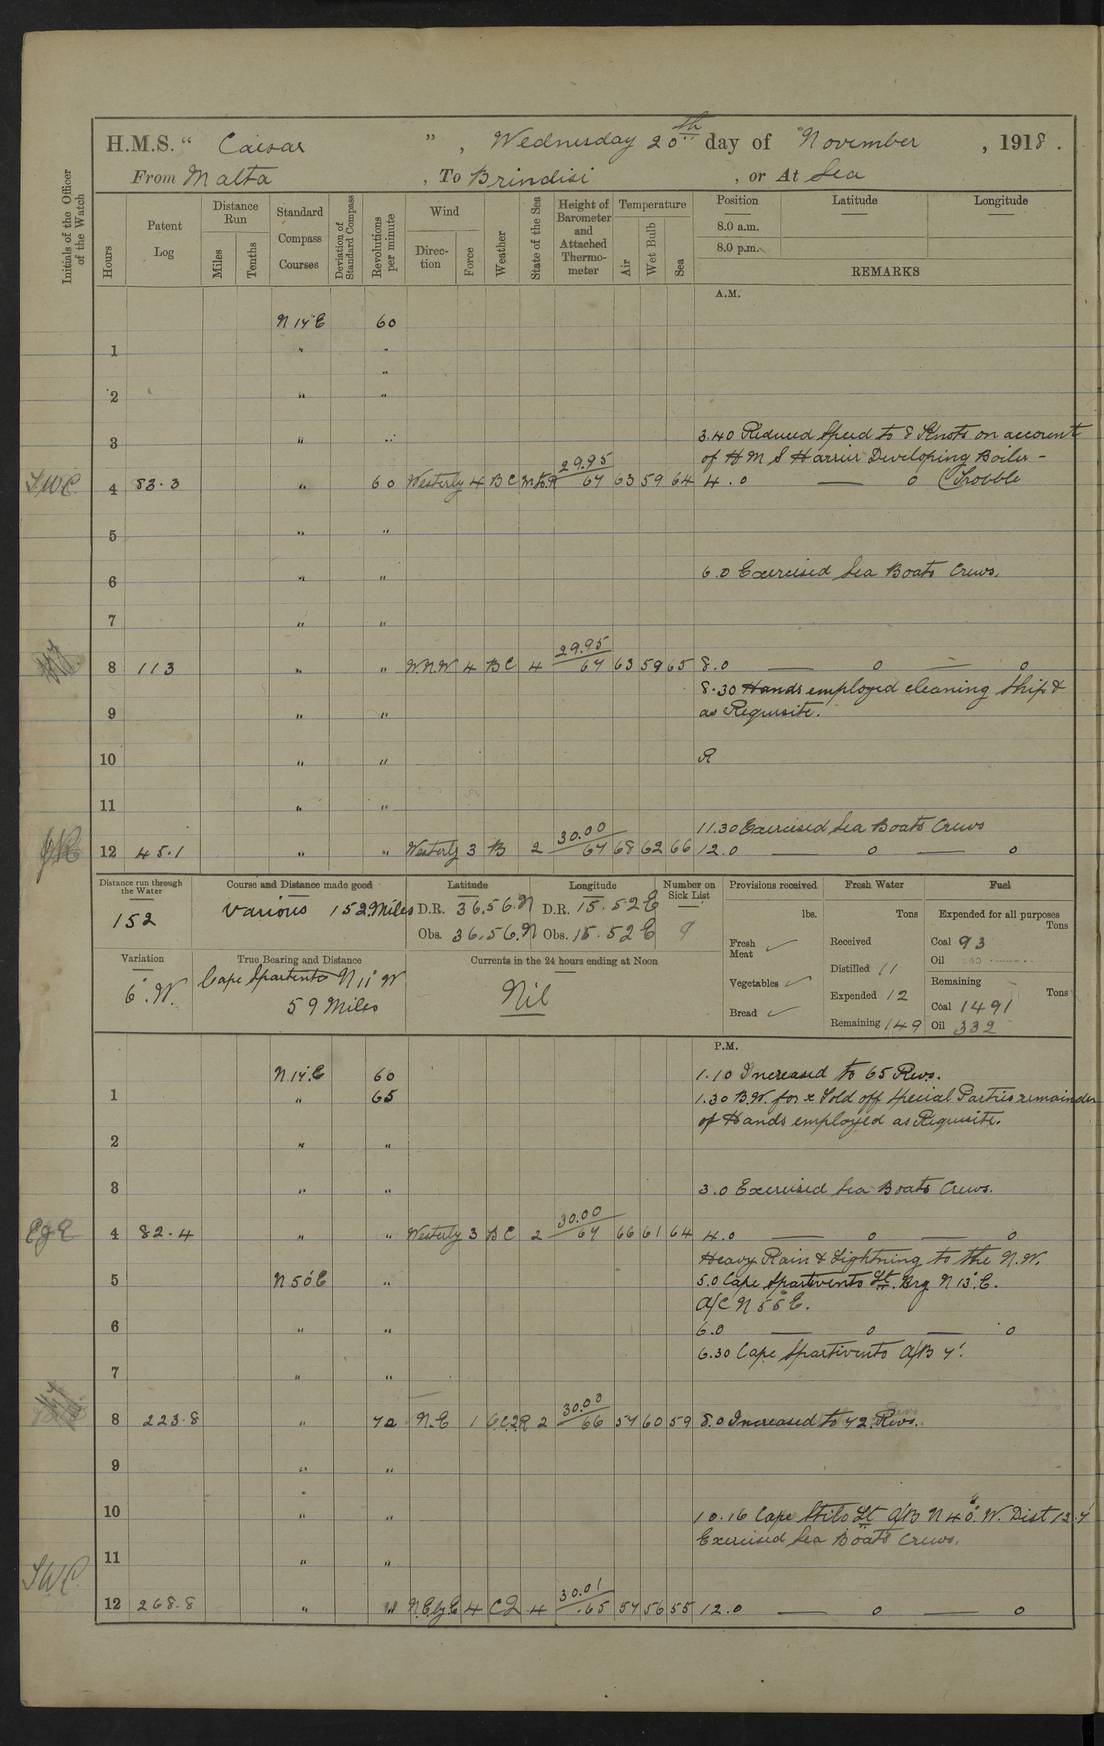 H.M.S. " Caesar ", Wednesday 20th day of November, 1918.
From Malta, To Brindisi, or At Sea
Initials of the Officer of the Watch
Hours
Patent Log
Distance Run
Miles
Tenths
Standard Compass Courses
Deviation of Standard Compass
Revolutions per minute
Wind
Direction
Force
Weather
State of the Sea
Height of Barometer and Attached Thermometer
Temperature
Air
Wet Bulb
Sea
Position Latitude Longitude
8.0 a.m.
8.0 p.m.
REMARKS
A.M.
N 14° E 60
1 " "
"
2 " "
3 " "
3.40 Reduced Speed to 8 Knots on account
of H M S Harrier Developing Boiler -
4 83.3 " 60 Westerly 4 BC 29.95 64 63 59 64 4.0 — 0 Trouble
5 " "
6 " " 6.0 Exercised Sea Boats Crews.
7 " "
8 113 " " W.N.W 4 BC 4 29.95 64 63 59 65 8.0 — 0 — 0
8.30 Hands employed cleaning Ship &
9 " " as Requisite.
10 " " R
11 " "
11.30 Exercised Sea Boats Crews
12 45.1 " " Westerly 3 B 2 30.00 64 68 62 66 12.0 — 0 — 0
Distance run through the Water
152
Course and Distance made good
Various 152 Miles
Latitude
D.R. 36.56.N
Obs. 36.56.N
Longitude
D.R. 15.52 E
Obs. 15.52 E
Number on Sick List
9
Provisions received
lbs.
Fresh Meat ✓
Vegetables ✓
Bread ✓
Fresh Water
Tons
Received
Distilled 11
Expended 12
Remaining 149
Fuel
Expended for all purposes
Tons
Coal 93
Oil
Remaining
Tons
Coal 1491
Oil 332
Variation
6°.W.
True Bearing and Distance
Cape Spartivento N 11° W
59 Miles
Currents in the 24 hours ending at Noon
Nil
P.M.
N 14° E 60 1.10 Increased to 65 Revs.
1 " 65 1.30 B.W. for & Told off Special Parties remainder
of Hands employed as Requisite.
2 " "
3 " " 3.0 Exercised Sea Boats Crews.
4 82.4 " " Westerly 3 BC 2 30.00 64 66 61 64 4.0 — 0 — 0
Heavy Rain & Lightning to the N.W.
5 N 56 E " 5.0 Cape Spartivento Lt. Brg N 13° E.
A/C N 55° E.
6 " " 6.0 — 0 — 0
6.30 Cape Spartivento A/B 4'.
7 " "
8 223.8 " 72 N.E 1 2 30.00 66 57 60 59 8.0 Increased to 72 Revs.
9 " "
10 " " 10.16 Cape Stilo Lt A/B N 40° W. Dist 12.4'
Exercised Sea Boats Crews.
11 " "
12 268.8 " " N.E by E 4 4 30.01 65 57 56 55 12.0 — 0 — 0